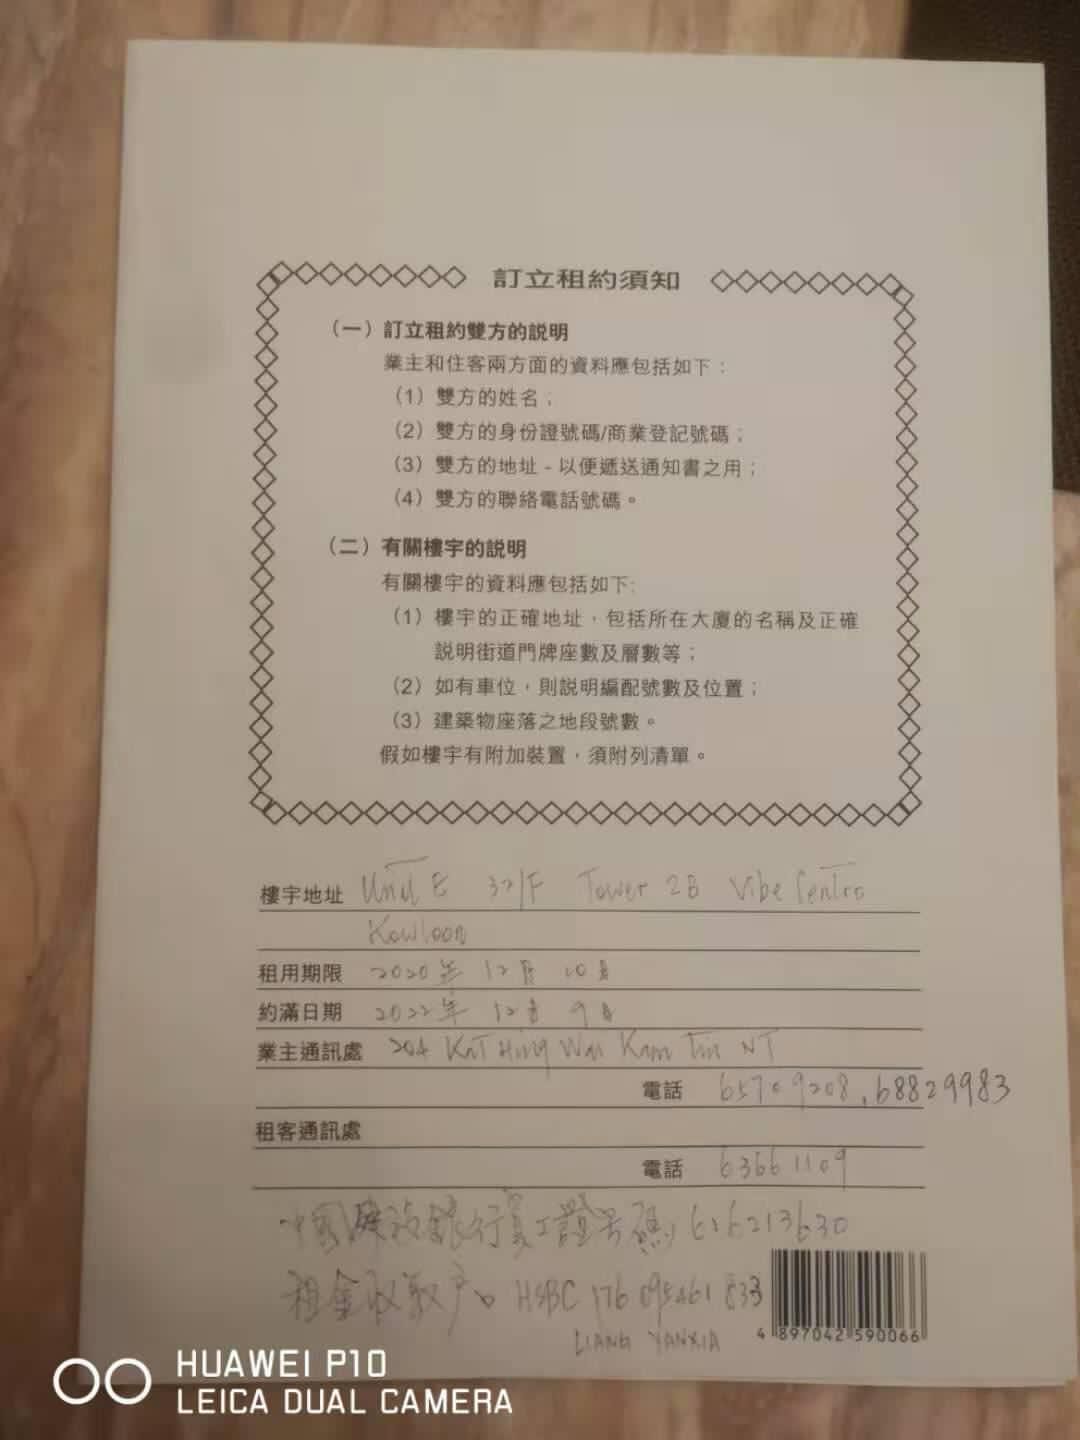 訂立租約須知
（一）訂立租約雙方的説明
業主和住客兩方面的資料應包括如下：
（1）雙方的姓名；
（2）雙方的身份證號碼/商業登記號碼；
（3）雙方的地址 - 以便遞送通知書之用；
（4）雙方的聯絡電話號碼。
（二）有關樓宇的説明
有關樓宇的資料應包括如下:
（1）樓宇的正確地址，包括所在大廈的名稱及正確
説明街道門牌座數及層數等；
（2）如有車位，則説明編配號數及位置；
（3）建築物座落之地段號數。
假如樓宇有附加裝置，須附列清單。
樓宇地址 Unit E 32/F Tower 2B Vibe Centro
Kowloon
租用期限 2020年 12月 10日
約滿日期 2022年 12月 9日
業主通訊處 204 Kat Hing Wai Kam Tin NT
電話 65709208, 68829983
租客通訊處
電話 63661109
中國建設銀行員工證号碼 616213630
租金收取户口 HSBC 176 095461 833
LIANG YANXIA
4 897042 590066
HUAWEI P10
LEICA DUAL CAMERA